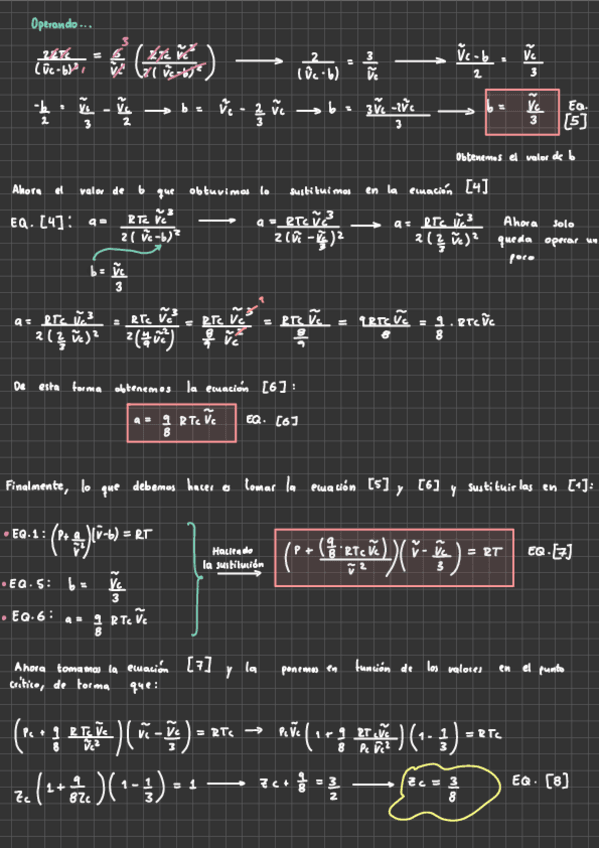 Operando...
2RTc/(Ṽc-b)² = 6/Ṽc⁴ (RTc Ṽc³/2(Ṽc-b)²) → 2/(Ṽc-b) = 3/Ṽc → Ṽc-b/2 = Ṽc/3
-b/2 = Ṽc/3 - Ṽc/2 → b = Ṽc - 2/3 Ṽc → b = 3Ṽc-2Ṽc/3 → b = Ṽc/3 Eq. [5]
Obtenemos el valor de b
Ahora el valor de b que obtuvimos lo sustituimos en la ecuación [4]
EQ. [4]: a = RTc Ṽc³/2(Ṽc-b)² → a = RTc Ṽc³/2(Ṽc - Ṽc/3)² → a = RTc Ṽc³/2(2/3 Ṽc)² Ahora solo queda operar un poco
b = Ṽc/3
a = RTc Ṽc³/2(2/3 Ṽc)² = RTc Ṽc³/2(4/9 Ṽc²) = RTc Ṽc³/8/9 Ṽc² = RTc Ṽc/8/9 = 9RTc Ṽc/8 = 9/8 · RTc Ṽc
De esta forma obtenemos la ecuación [6]:
a = 9/8 RTc Ṽc EQ. [6]
Finalmente, lo que debemos hacer es tomar la ecuación [5] y [6] y sustituirlas en [1]:
• EQ.1: (P + a/Ṽ²)(Ṽ-b) = RT
• EQ.5: b = Ṽc/3
• EQ.6: a = 9/8 RTc Ṽc
Haciendo la sustitución
(P + (9/8 · RTc Ṽc)/Ṽ²)(Ṽ - Ṽc/3) = RT EQ.[7]
Ahora tomamos la ecuación [7] y la ponemos en función de los valores en el punto
crítico, de forma que:
(Pc + 9/8 RTc Ṽc/Ṽc²)(Ṽc - Ṽc/3) = RTc → PcṼc (1 + 9/8 RTcṼc/Pc Ṽc²)(1 - 1/3) = RTc
Zc (1 + 9/8Zc)(1 - 1/3) = 1 → Zc + 9/8 = 3/2 → Zc = 3/8 EQ. [8]